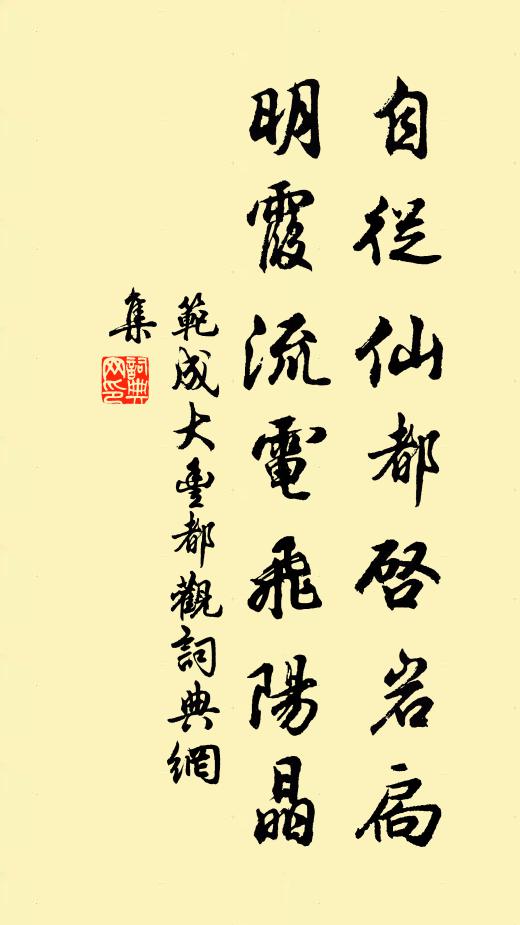 自從仙都啓岩扃
明霞流電飛陽晶
範成大豐都觀詞典網
集
詞典
网印